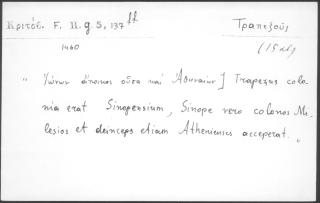 Κριτόβ. F. H. g 5, 137 ff
Τραπεζοῦς
1460
(15 αἰ)
" Ἰώνων ἄποικος οὖσα καὶ Ἀθηναίων] Trapezus colo
nia erat Sinopensium, Sinope vero colonos Mi
lesios et deinceps etiam Athenienses acceperat. "